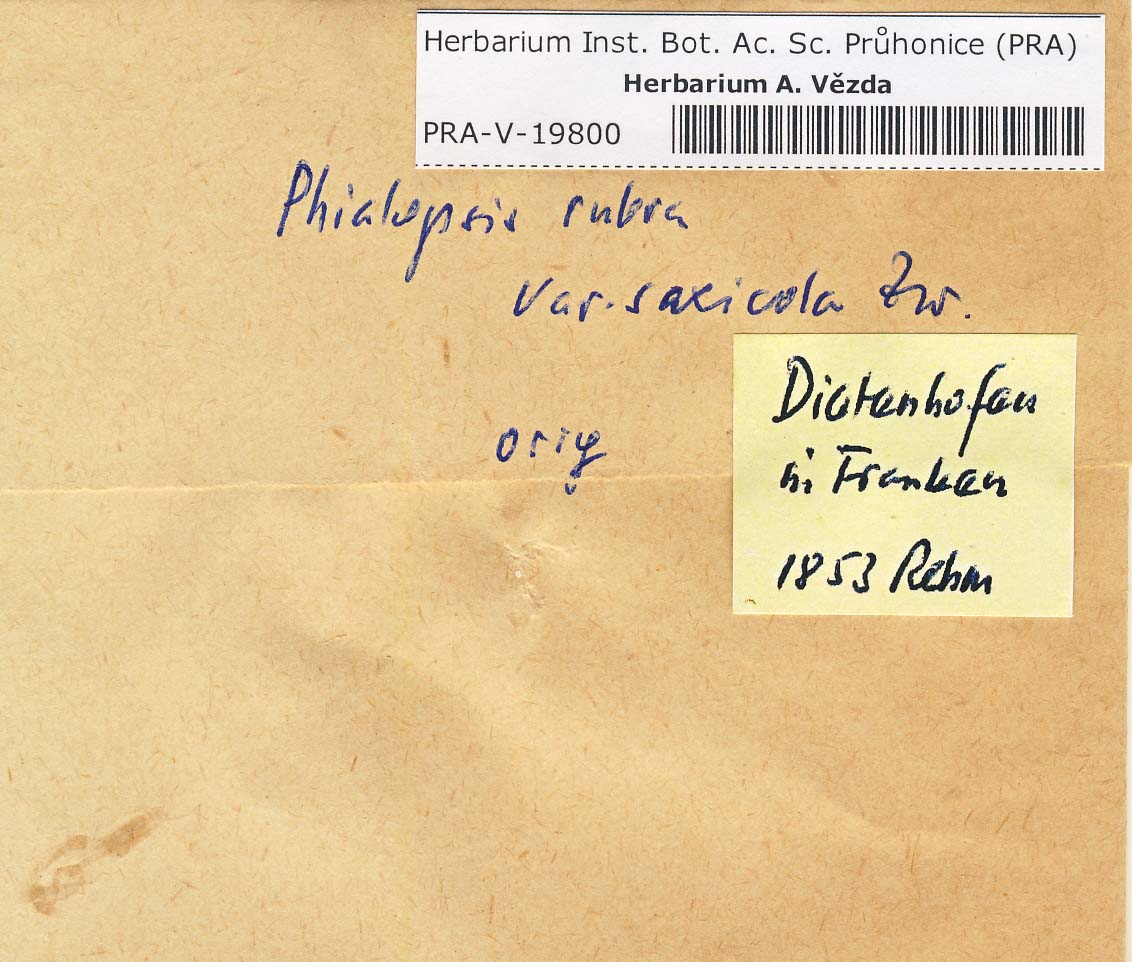 Herbarium Inst. Bot. Ac. Sc. Průhonice (PRA)
Herbarium A. Vězda
PRA-V-19800
Phialopsis rubra
var. saxicola Zw.
orig
Dietenhofen
in Franken
1853 Rehm